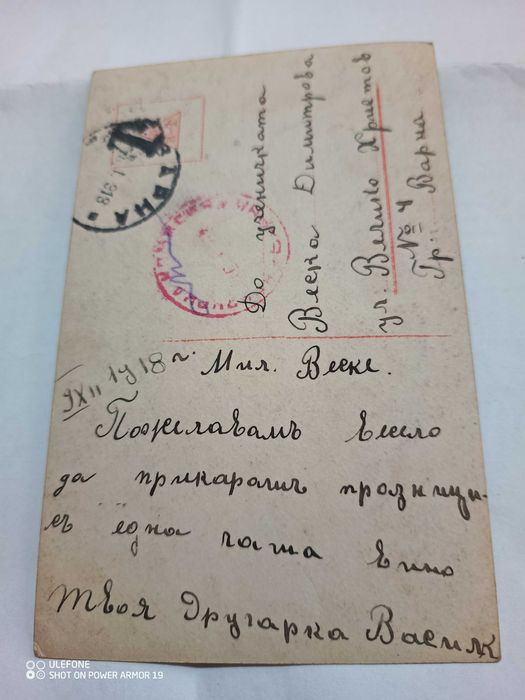 До ученичката
Веска Димитрова
ул. Велико Христов
№ 4
Гр: Варна
9XII 1918 г.
Мил. Веске.
Пожелавамъ весело
да прикарашъ празници-
тъ една чаша вино
твоя другарка Василк
ULEFONE
SHOT ON POWER ARMOR 19